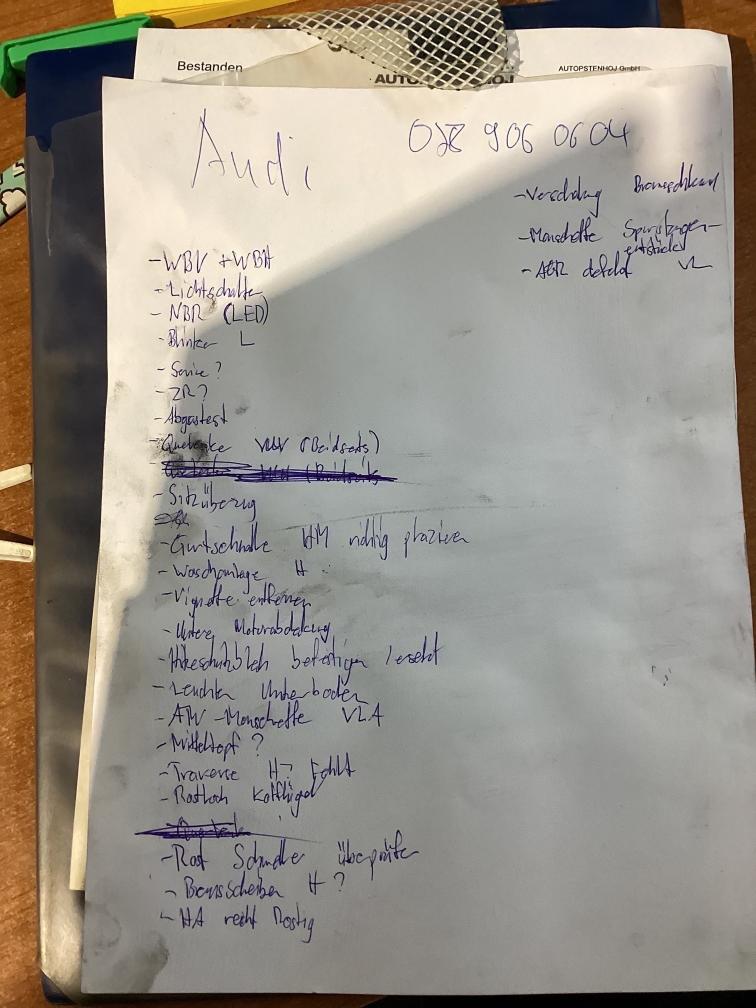 Bestanden
AUTOPSTENHOJ GmbH
Audi
028 906 0604
- Verschalung
- Manschette Spurstangen-
- AGR defekt VL
- WBV + WBH
- Lichtschalter
- NBR (LED)
- Blinker L
- Service?
- ZR?
- Abgastest
- Querlenke (Beidseits)
- Sitzüberzug
- Gurtschnalle HM richtig plazieren
- Waschanlage H
- Vignette entfernen
- Untere Motorabdekung
- befestigen / ersetzt
- Leuchten Unterboden
- AW-Manschette VLA
- Mitteltopf?
- Traverse H? Fehlt
- Rostloch Kotflügel
- Rost Schweller überprüfen
- Bremsscheiben H?
- HA recht Rostig